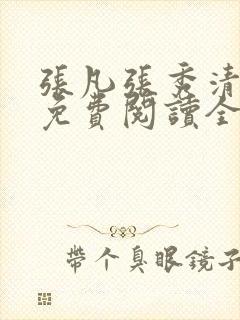 張凡張秀清
免費閱讀全
帶个臭眼鏡子